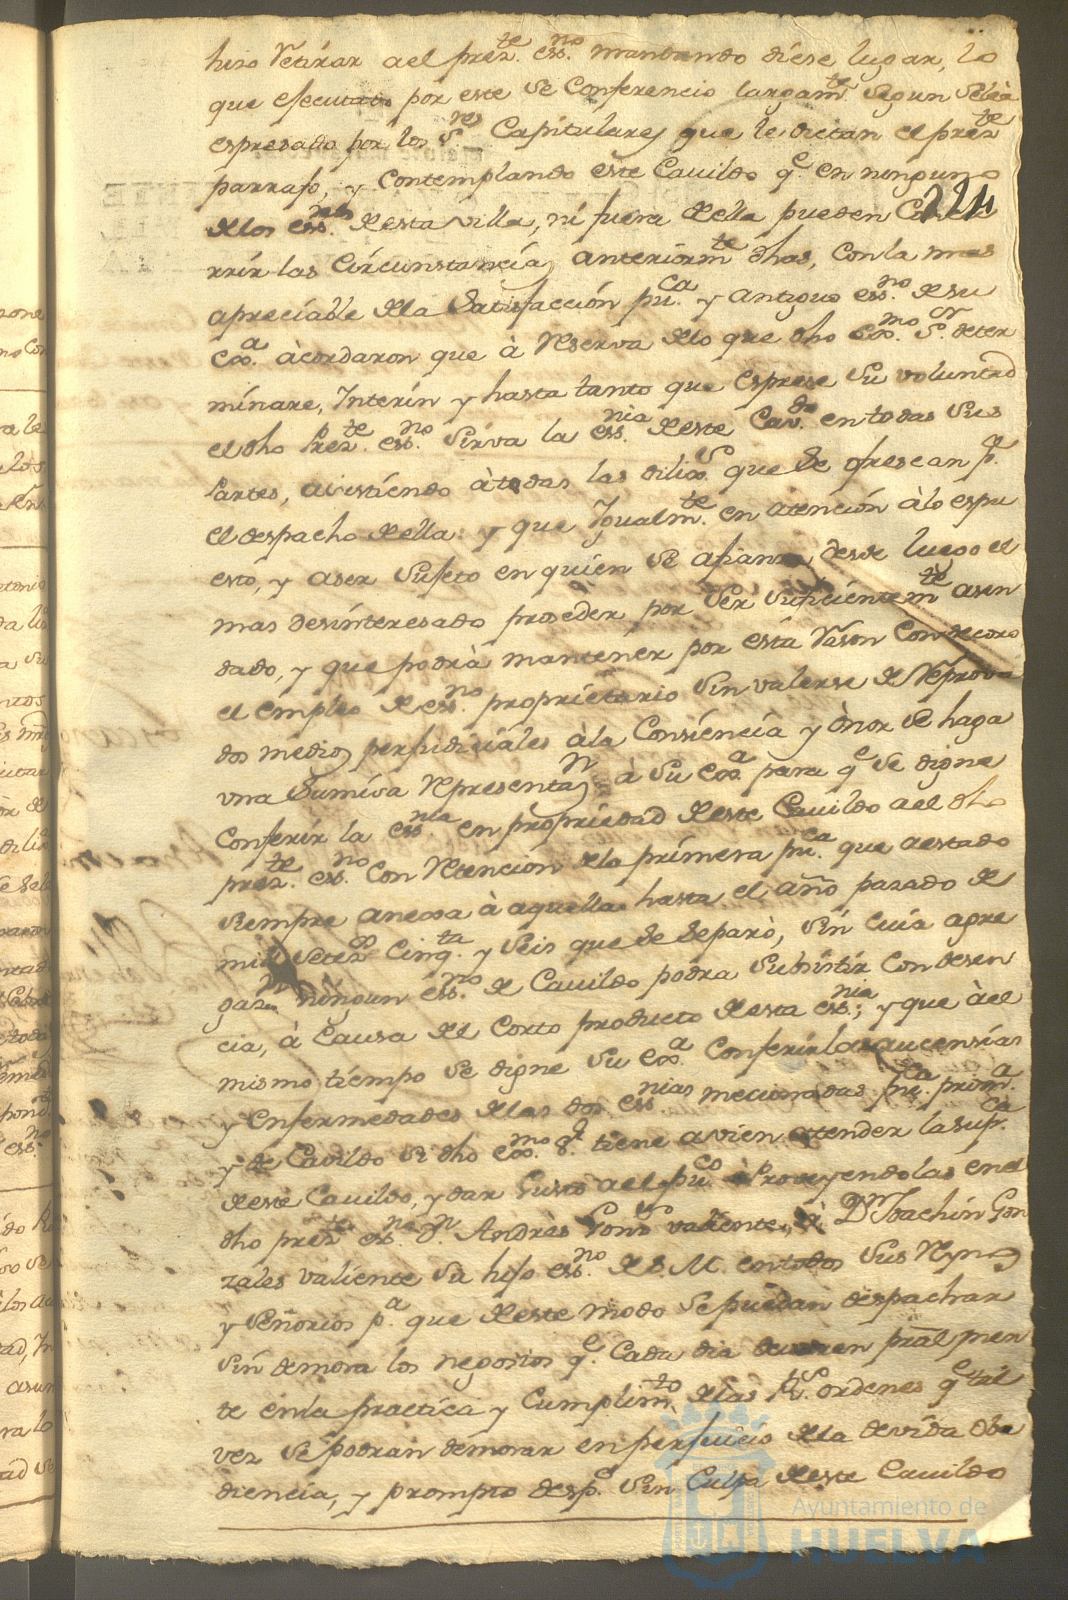 hizo Retirar a el prezte. essno. mandando diese lugar, lo
que efecutado por este se Conferencio largamte. segun seléa
espresado por los Sres. Capitulares que le dictan el prezte
parrafo, y Contemplando este Cavildo qe. en ninguno
224
delos essnos. desta villa, ni fuera della pueden
rrir las Circunstancias anteriormte. dhas, Con la mas
apreciable dela Satisfacción puca. y antiguo essno. desu
Exa. àcordaron que à Reserva delo que dho Exmo. Sor. deter
minare, Interin y hasta tanto que esprese su voluntad
el dho Prezte. essno. sirva la essnia. deste Cavdo. entodas sus
Partes, asistiendo àtodas las diligs. que se ofrescan pa.
el despacho della: y que Igualmte. en atención àlo espu
estó, y aser sujeto en quien se afianza desde luego el
mas desinteresado proseder por ser suficientemte asen
dado, y que podrà mantenér por está Rason Con decoro
el empleo de essno. proprietario sin valerse de Reprova
dos medios perjudiciàles àla Consiencià y ònor se haga
vna Sumisa Representan. à Su Exa. para qe se digne
Conferir la essnia. en propriedad deste Cavildo a el dho
prezte. essno. Con Retencion dela primera puca. que aestado
siempre anecsa à aquella hasta el año pasado de
mil setezos. Cinqta. y seis que se separò, sin cuia agre
gazn. ningun essno. de Cavildo podra subsistir Con desen
cia, à Causa del Corto producto desta essnia; y que àel
mismo tiempo se digne su Exa. Conferir las aucensias
y enfermedades delas dos essnias mecionadas puca. prima.
y de Cavildo si dho Exmo. Sr. tiene avien atender la supca.
deste Cavildo, y dar Gusto a el puco. Proveyendolas en el
dho prezte. essno. Dn. Andrès Gonzs valiente, à Dn Joachin Gon
zales valiente su hijo essno. de S. M. entodos sus Reynos
y señorios pa. que deste modo se puedan despachar
sin demora los negosios qe. Cada dia ocurren pralmen
te enla practica y Cumplimto. delas Rs. ordenes qe tal
vez se podran demorar en perjuicio dela devida obe
diencia, y prompto despo. sin Culpa deste Cavildo
Ayuntamiento de
HUELVA